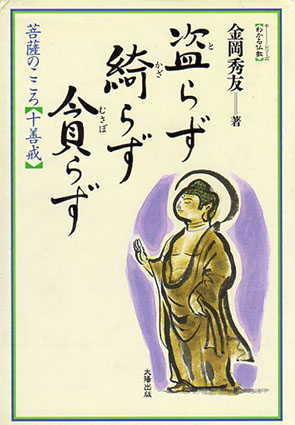 シリーズ
【わかる仏教】
金岡秀友——著
盗らず
と
綺らず
かざ
貪らず
むさぼ
菩薩のこころ【十善戒】
太陽出版